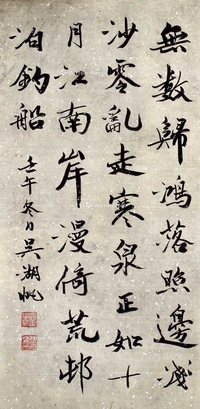 無數歸鴻落照邊淺
沙零亂走寒泉正如十
月江南岸漫倚荒邨
泊釣船
壬午冬日吳湖帆